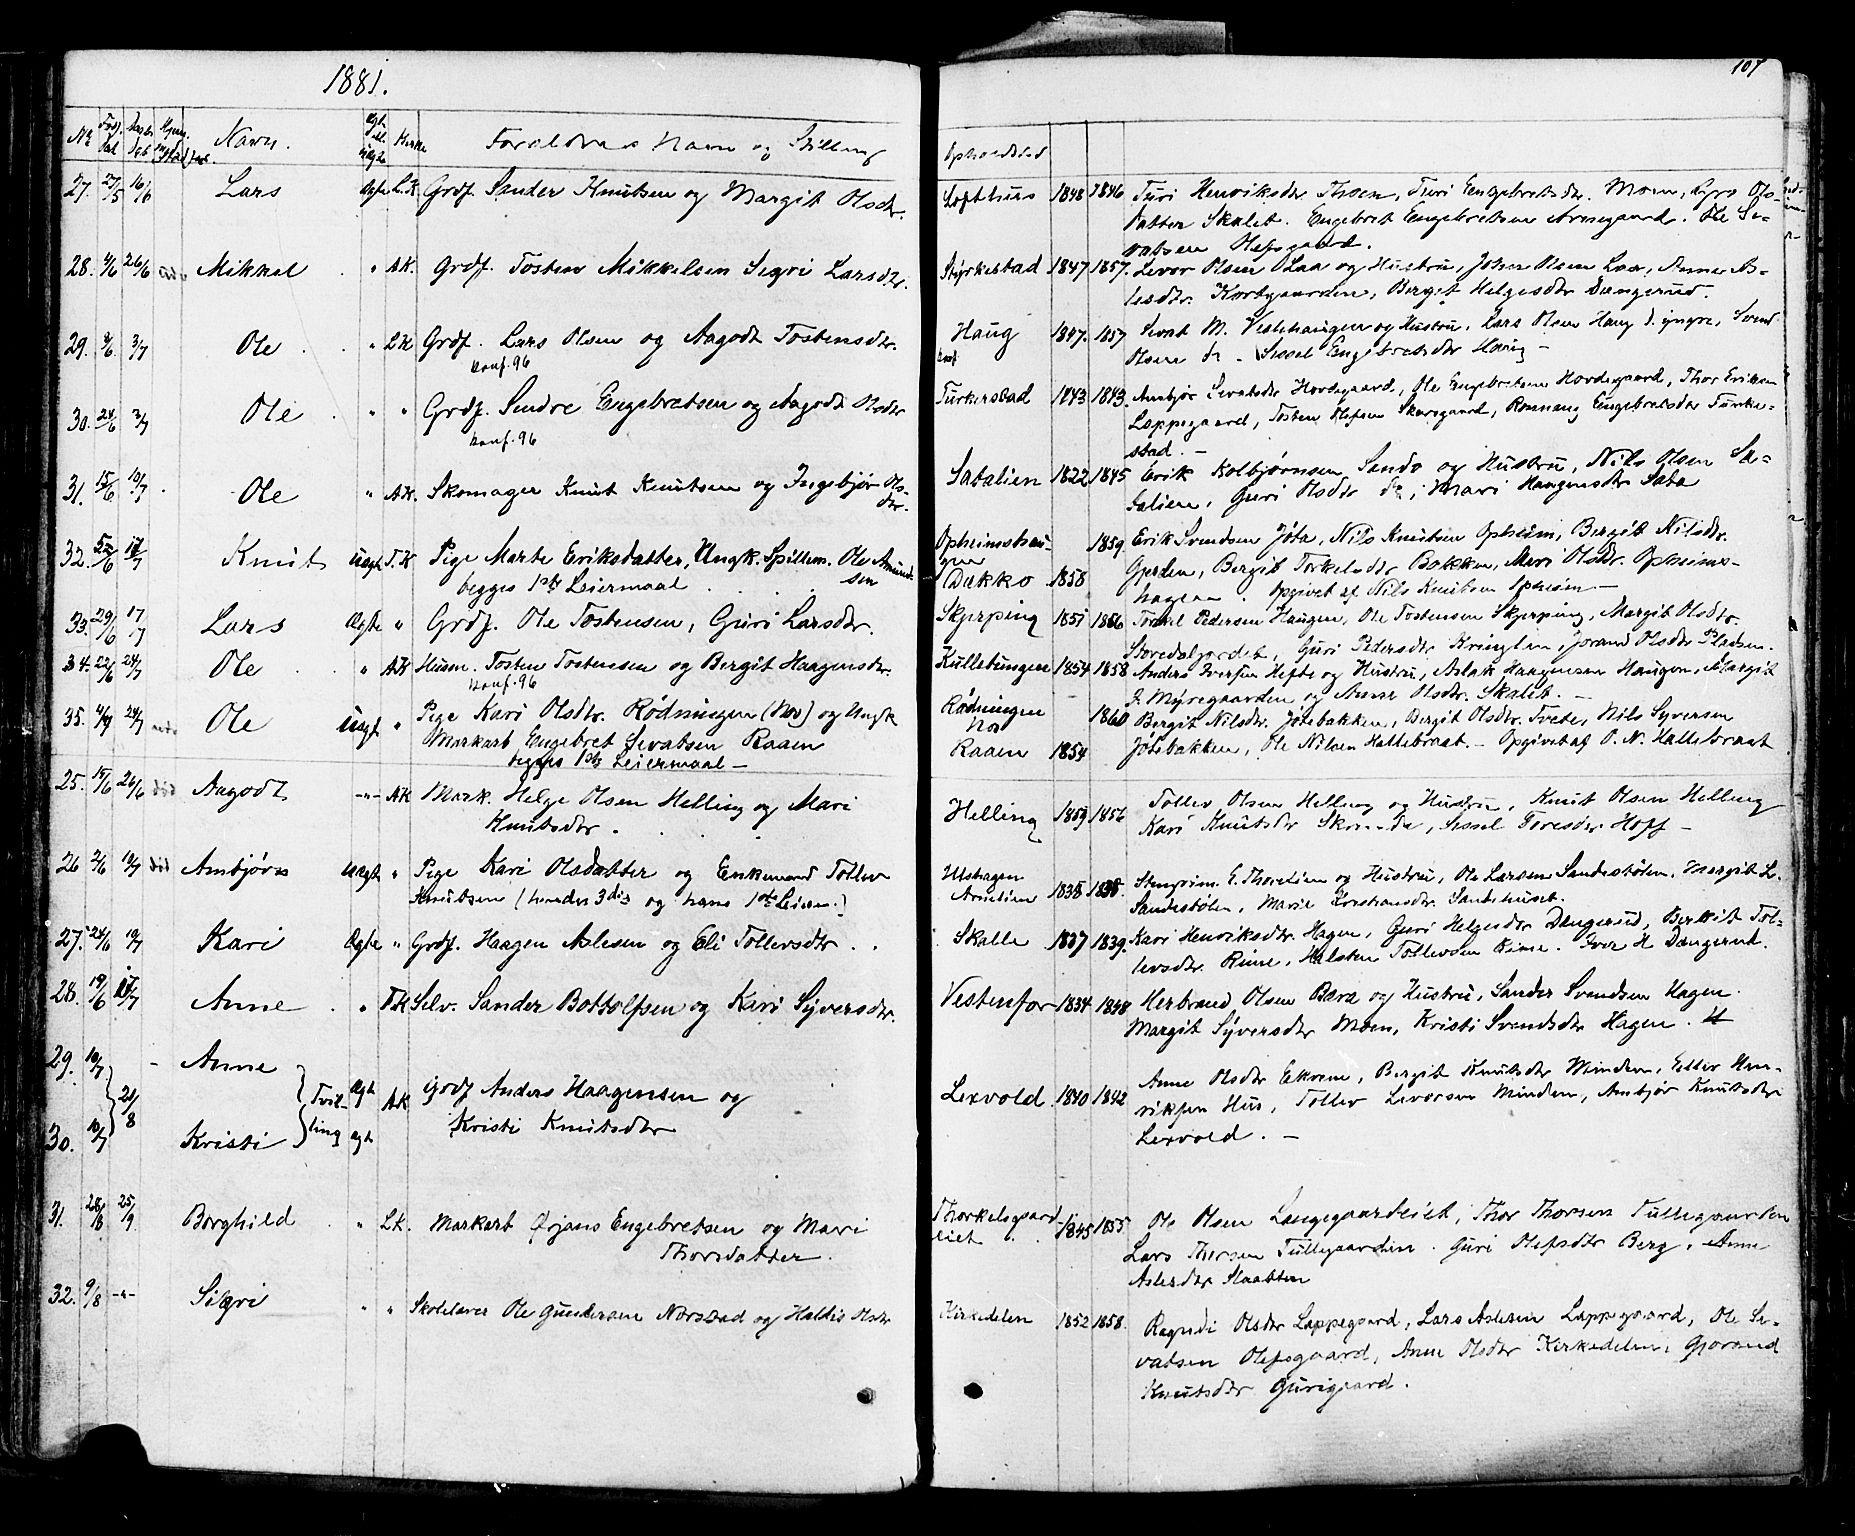 1881.
107
No Navn. Kirke Forældres Navn og Stilling Opholdsted
27. 27/5 16/6 Lars Ægte L.K. Grdf. Sander Knutsen og Margit Olsdtr. Lofthus 1848 1846 Turi Henriksdtr Thoen, Turi Engebretsdtr. Moen, Gyro Ols-
datter Skalet. Engebret Engebretsen Arnegaard. Ole Se-
vatsen Olefsgaard.
28. 4/6 26/6 Mikkel " A.K. Grdf. Tosten Mikkelsen Segri Larsdtr. Styrkestad 1847 1857. Levor Olsen Laa og Hustru, Johen Olsen Laa, Anne As-
lesdtr. Kortgaarden, Berget Helgesdtr Dængerud.
29. 9/6 3/7 Ole " L.K Grdf. Lars Olsen og Aagodt Tostensdtr. Haug 1847. 1857 Sevat M. Veslehaugen og Hustru, Lars Olsen Haug d. yngre, Svend
konf. 96 Olsen do - Sissel Engebretsdtr Haug -
30. 24/6 3/7 Ole " " Grdf. Sendre Engebretsen og Aagodt Olsdtr Turkerstad 1843 1843. Ambjør Sevatsdtr Hovdegaard, Ole Engebretsen Hovdegaard, Thor Eriksen
konf. 96 Lappegaard, Tosten Olefsen Skarsgaard, Rannaug Engebretsdtr Turke-
stad. -
31. 15/6 10/7 Ole " A.K. Skomager Knut Knutsen og Ingebjør Ols-
dtr. Sataliën 1822 1845 Erik Kolbjørnsen Sando og Hustru, Nils Olsen Sa-
talien, Guri Olsdtr do, Mari Haagensdtr Sata
32. 5/6 17/7 Knut Uægt T.K Pige Marte Eriksdatter, Ungk. Spillem. Ole Amund-
sen Opheimshau-
gen 1859 Erik Svendsen Jøta, Nils Knutsen Opheim, Bergit Nilsdtr.
begges 1ste Leiermaal Bakko 1858 Gjerden, Bergit Torkelsdtr Bakken, Mari Olsdtr. Opheims-
hagen. Opgivet af Nils Knutsen Opheim -
33. 29/6 17/7 Lars Ægte " Grdf. Ole Tostensen, Guri Larsdtr. Skjerping 1851 1856 Torkel Pedersen Haugen, Ole Tostensen Skjerping, Margit Olsdtr.
Storedalgardet, Guri Pedersdtr Kringlen, Jorand Olsdtr Pladsen.
34. 22/6 24/7 Ole " A.K Husm. Tosten Tostensen og Bergit Haagensdtr. Kullebungen 1854 1858 Anders Iversen Hefte og Hustru, Aslak Haagensen Haugen, Margit
konf. 96 Myregaarden og Anne Olsdtr. Skaleb. -
35. 4/7 24/7 Ole Uægt " Pige Kari Olsdtr. Rødningen (Nos) og Ungk Rødningen
1860 Bergit Nilsdtr. Jøtebakken, Bergit Olsdtr. Tveto, Nils Syversen
Markarb Engebret Sevatsen Raaen Raaen 1854 Jøtebakken, Ole Nilsen Hallebraat. - Opgivet af O. N. Hallebraat
begges 1ste Leiermaal -
25. 15/6 26/6 død Aagodt -"- A.K Mark. Helge Olsen Helling og Mari
Knutsdtr. Helling 1859 1856 Tollev Olsen Helling og Hustru, Knut Olsen Helling
Kari Knutsdtr, Sissel Toresdtr Hoff -
26 2/6 10/7 død Ambjørn Uægt " Pige Kari Olsdatter og Enkemand Tollev Ulshagen
Knutsen (hendes 3die og hans 1ste Leierm.) 1835 1838. E. Thoresen og Hustru, Ole Larsen Sandestølen, Margit L.
Sandestølen, Marie Kristiansdtr. Sandehuset.
27. 24/6 10/7 Kari Ægte " Grdf. Haagen Aslesen og Eli Tollevsdtr Skalle 1837 1839. Kari Henriksdtr Hagen, Guri Helgesdtr Dængerud, Berkit Tol-
levsdtr. Rime, Halsten Tollevsen Rime. Iver H Dængerud.
28. 19/6 17/7 Anne " T.K Selv. Sander Bottolfsen og Kari Syversdtr. Vestenfor 1834 1848 Herbrand Olsen Bara og Hustru, Sander Svendsen Hagen.
Margit Syversdtr Moen, Kristi Svendsdtr Hagen.
29. 10/7 - Anne Tvil- Ægt
21/8 A.K Grdf Anders Haagensen og Lexvold 1840 1842 Anne Olsdtr Ekren, Bergit Knutsdtr Minden, Hen-
riksen Hus, Tollev Levorsen Minden, Ambjør Knutsdtr
30. 10/7 Kristi ling ægt Kristi Knutsdtr Lexvold. -
31. 28/8 25/9 Borghild " L.K. Markarb Ørjans Engebretsen og Mari
Thorsdatter. Thorkelsgaard-
eiet 1845 1855 Ole Olsen Langegaardeiet, Thor Thorsen Tullegaarden
Lars Thorsen Tullegaarden. Guri Olefsdtr Berg. Anne
Aslesdtr Slaatten
32. 9/8 -"- Sigri " " Skolelærer Ole Gundersen Norstad og Haldis Olsdtr Kirkedelen 1852 1858. Ragndi Olsdtr Lappegaard, Lars Aslesen Lappegaard, Ole Se-
vatsen Olefsgaard, Anne Olsdtr Kirkedelen, Gjorand
Knutsdtr Gurigaard.